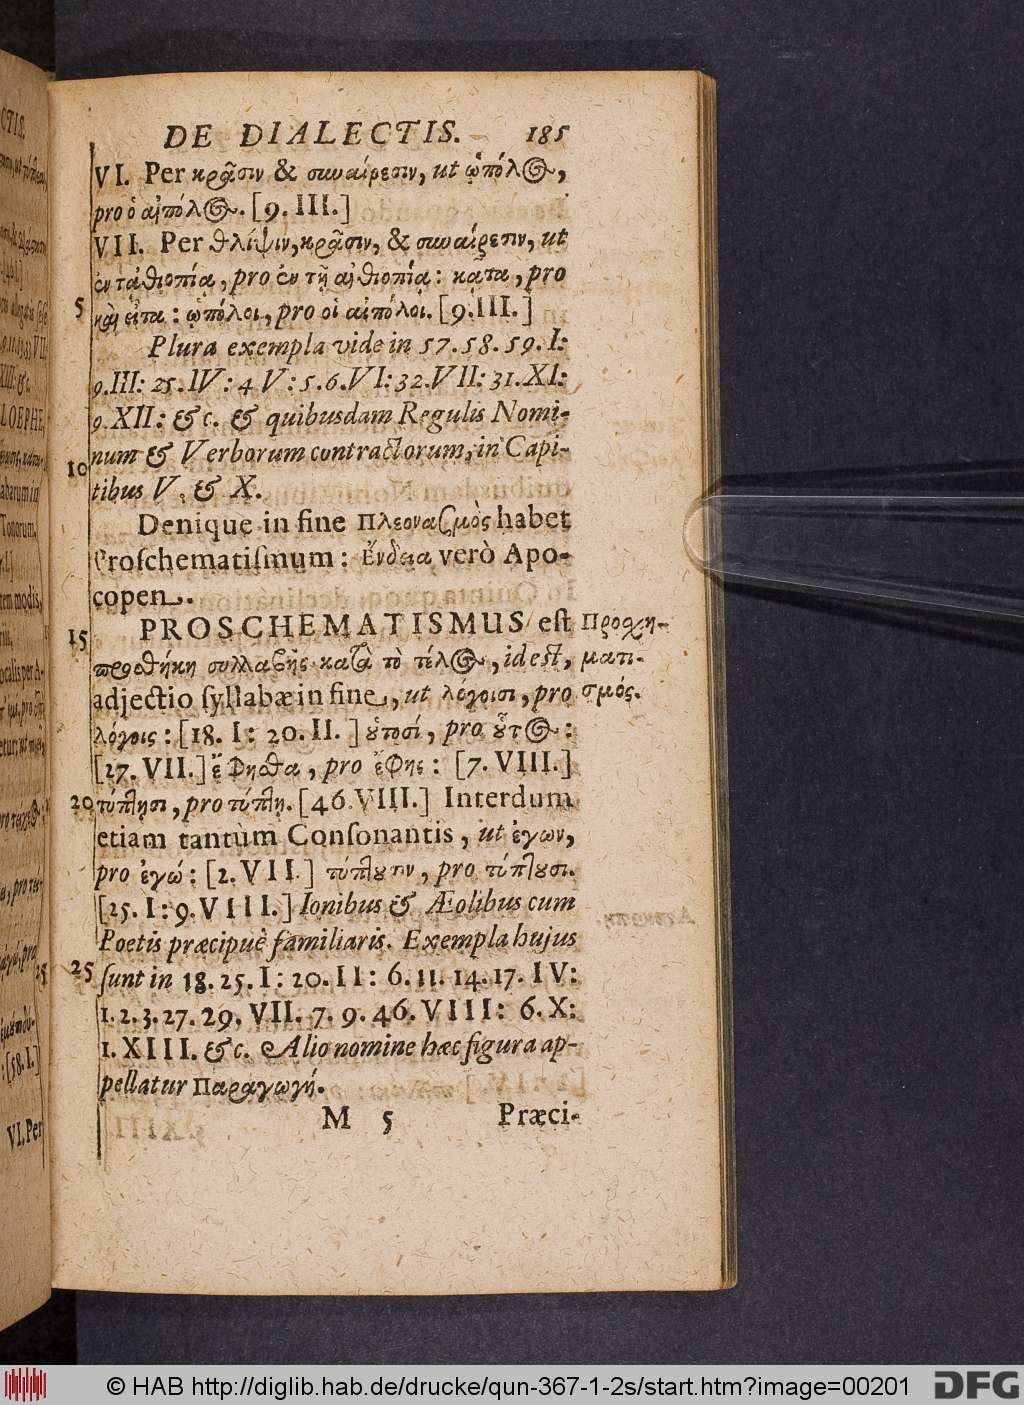 DE DIALECTIS. 185
VI. Per κρᾶσιν & συναίρεσιν, ut ᾡπόλος,
pro ὁ αἰπόλος. [9. III.]
VII. Per θλίψιν, κρᾶσιν, & συναίρεσιν, ut
ἐν τᾀθιοπίᾳ, pro ἐν τῇ αἰθιοπίᾳ: κᾆτα, pro
5 καὶ εἶτα: ᾡπόλοι, pro οἱ αἰπόλοι. [9. III.]
Plura exempla vide in 57. 58. 59. I:
9. III: 25. IV: 4 V: 5. 6. VI: 32. VII: 31. XI:
9. XII: &c. & quibusdam Regulis Nomi-
10 num & Verborum contractorum, in Capi-
tibus V. & X.
Denique in fine Πλεοναζμὸς habet
Proſchematiſmum: Ἔνδεια verò Apo-
copen.
15 PROSCHEMATISMUS eſt
Προσχη-
ματι-
σμός.
προσθήκη συλλαβῆς κατὰ τὸ τέλος, id eſt,
adjectio ſyllabæ in fine, ut λόγοισι, pro
λόγοις: [18. I: 20. II. ] οὑτοσί, pro οὗτος:
[27. VII.] ἔφησθα, pro ἔφης: [7. VIII.]
20 τύπτῃσι, pro τύπτῃ. [46 VIII.] Interdum
etiam tantùm Conſonantis, ut ἐγων,
pro ἐγώ: [2. VII.] τύπτουσιν, pro τύπτουσι.
[25. I: 9. VIII.] Ionibus & Æolibus cum
Poetis præcipuè familiaris. Exempla hujus
25 ſunt in 18. 25. I: 20. II: 6. 11. 14. 17. IV:
1. 2. 3. 27. 29. VII. 7. 9. 46. VIII: 6. X:
1. XIII. &c. Alio nomine hæc figura ap-
pellatur Παραγωγή.
M 5 Præci-
VI. Per
© HAB http://diglib.hab.de/drucke/qun-367-1-2s/start.htm?image=00201
DFG